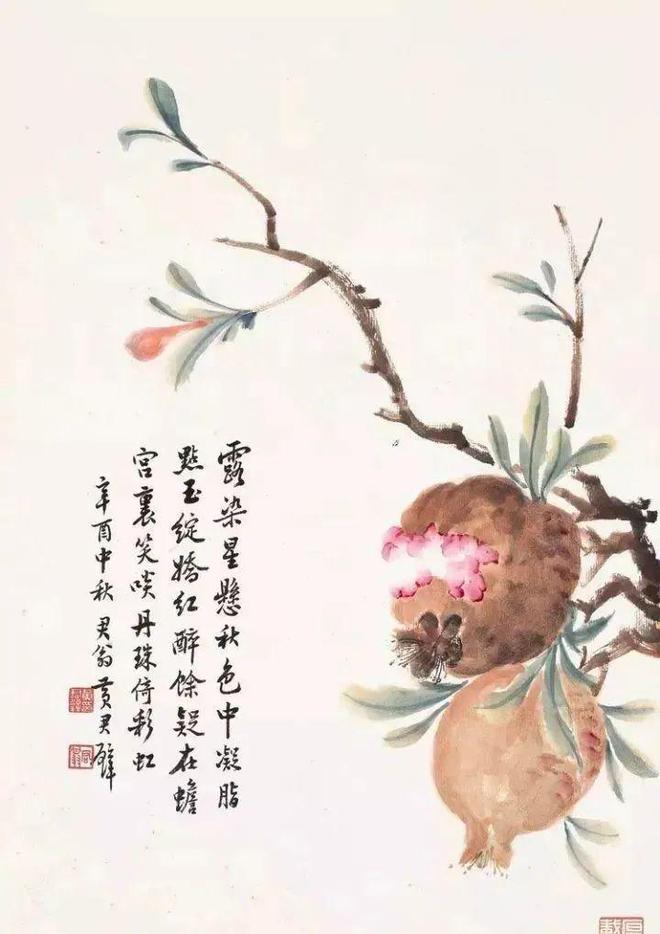 露染星懸秋色中凝脂
點玉綻嬌紅醉餘疑在蟾
宮裏笑啖丹珠倚彩虹
辛酉中秋 君翁黃君璧